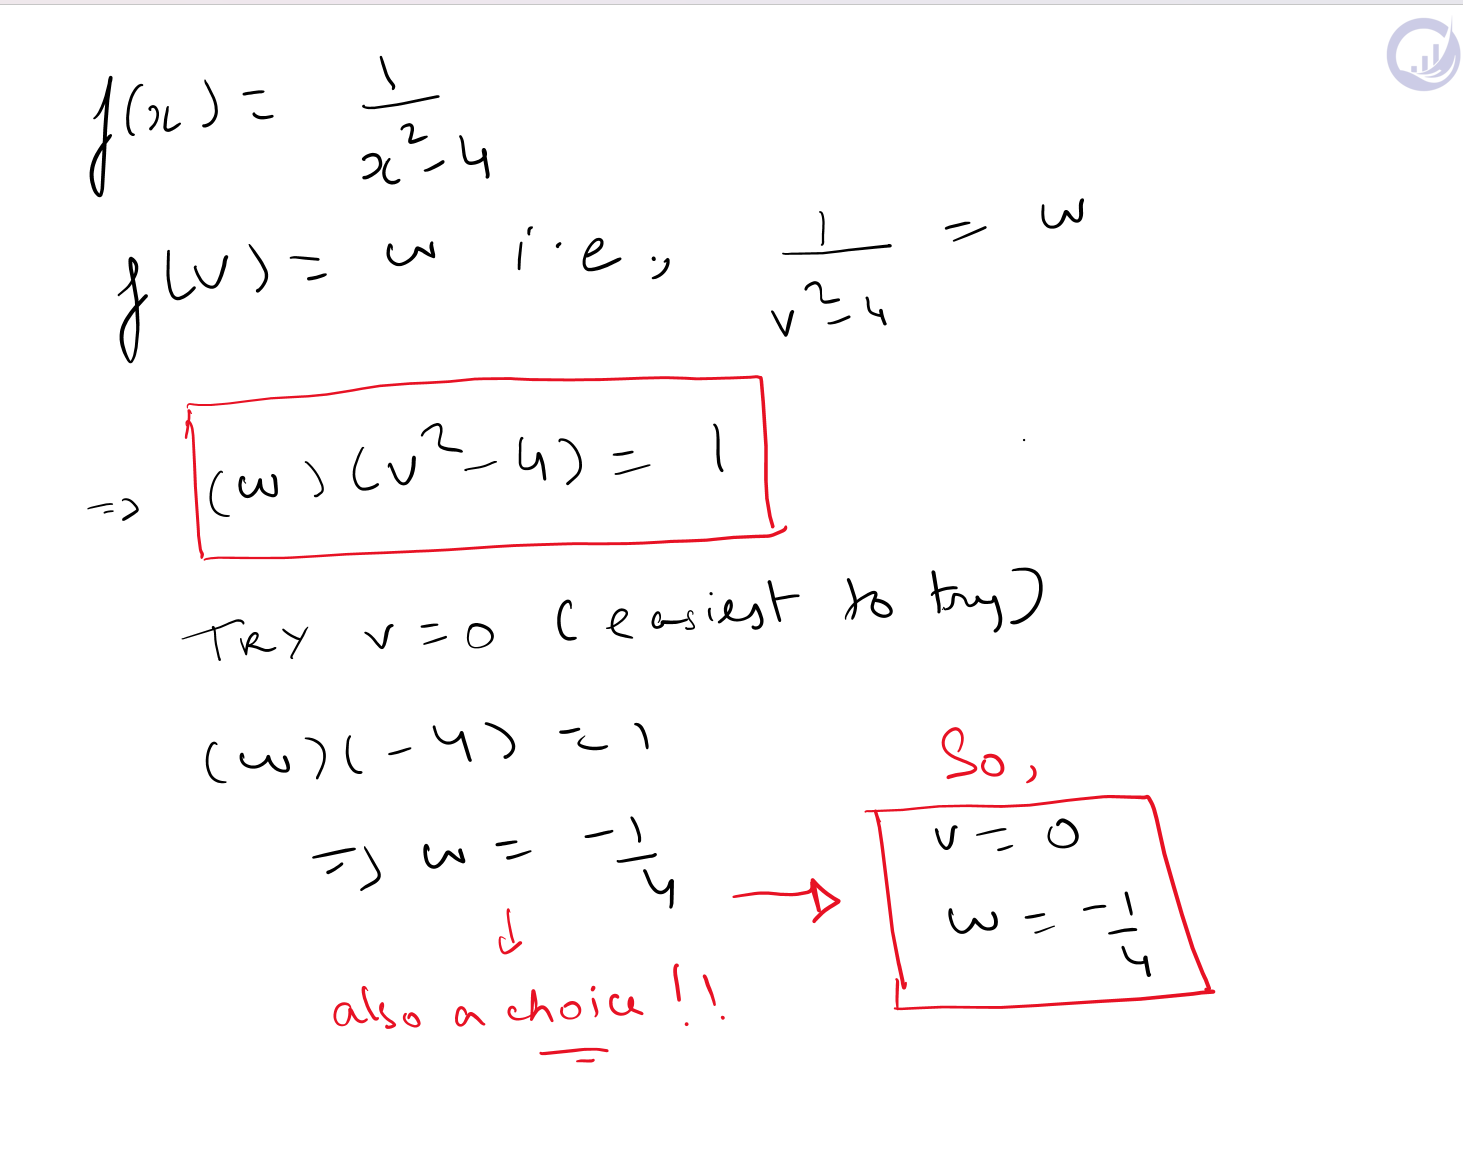 f(x) = 1/(x² - 4)
f(v) = w i.e., 1/(v² - 4) = w
=> (w)(v² - 4) = 1
TRY v = 0 (easiest to try)
(w)(-4) = 1
=> w = -1/4
also a choice!!
So,
v = 0
w = -1/4